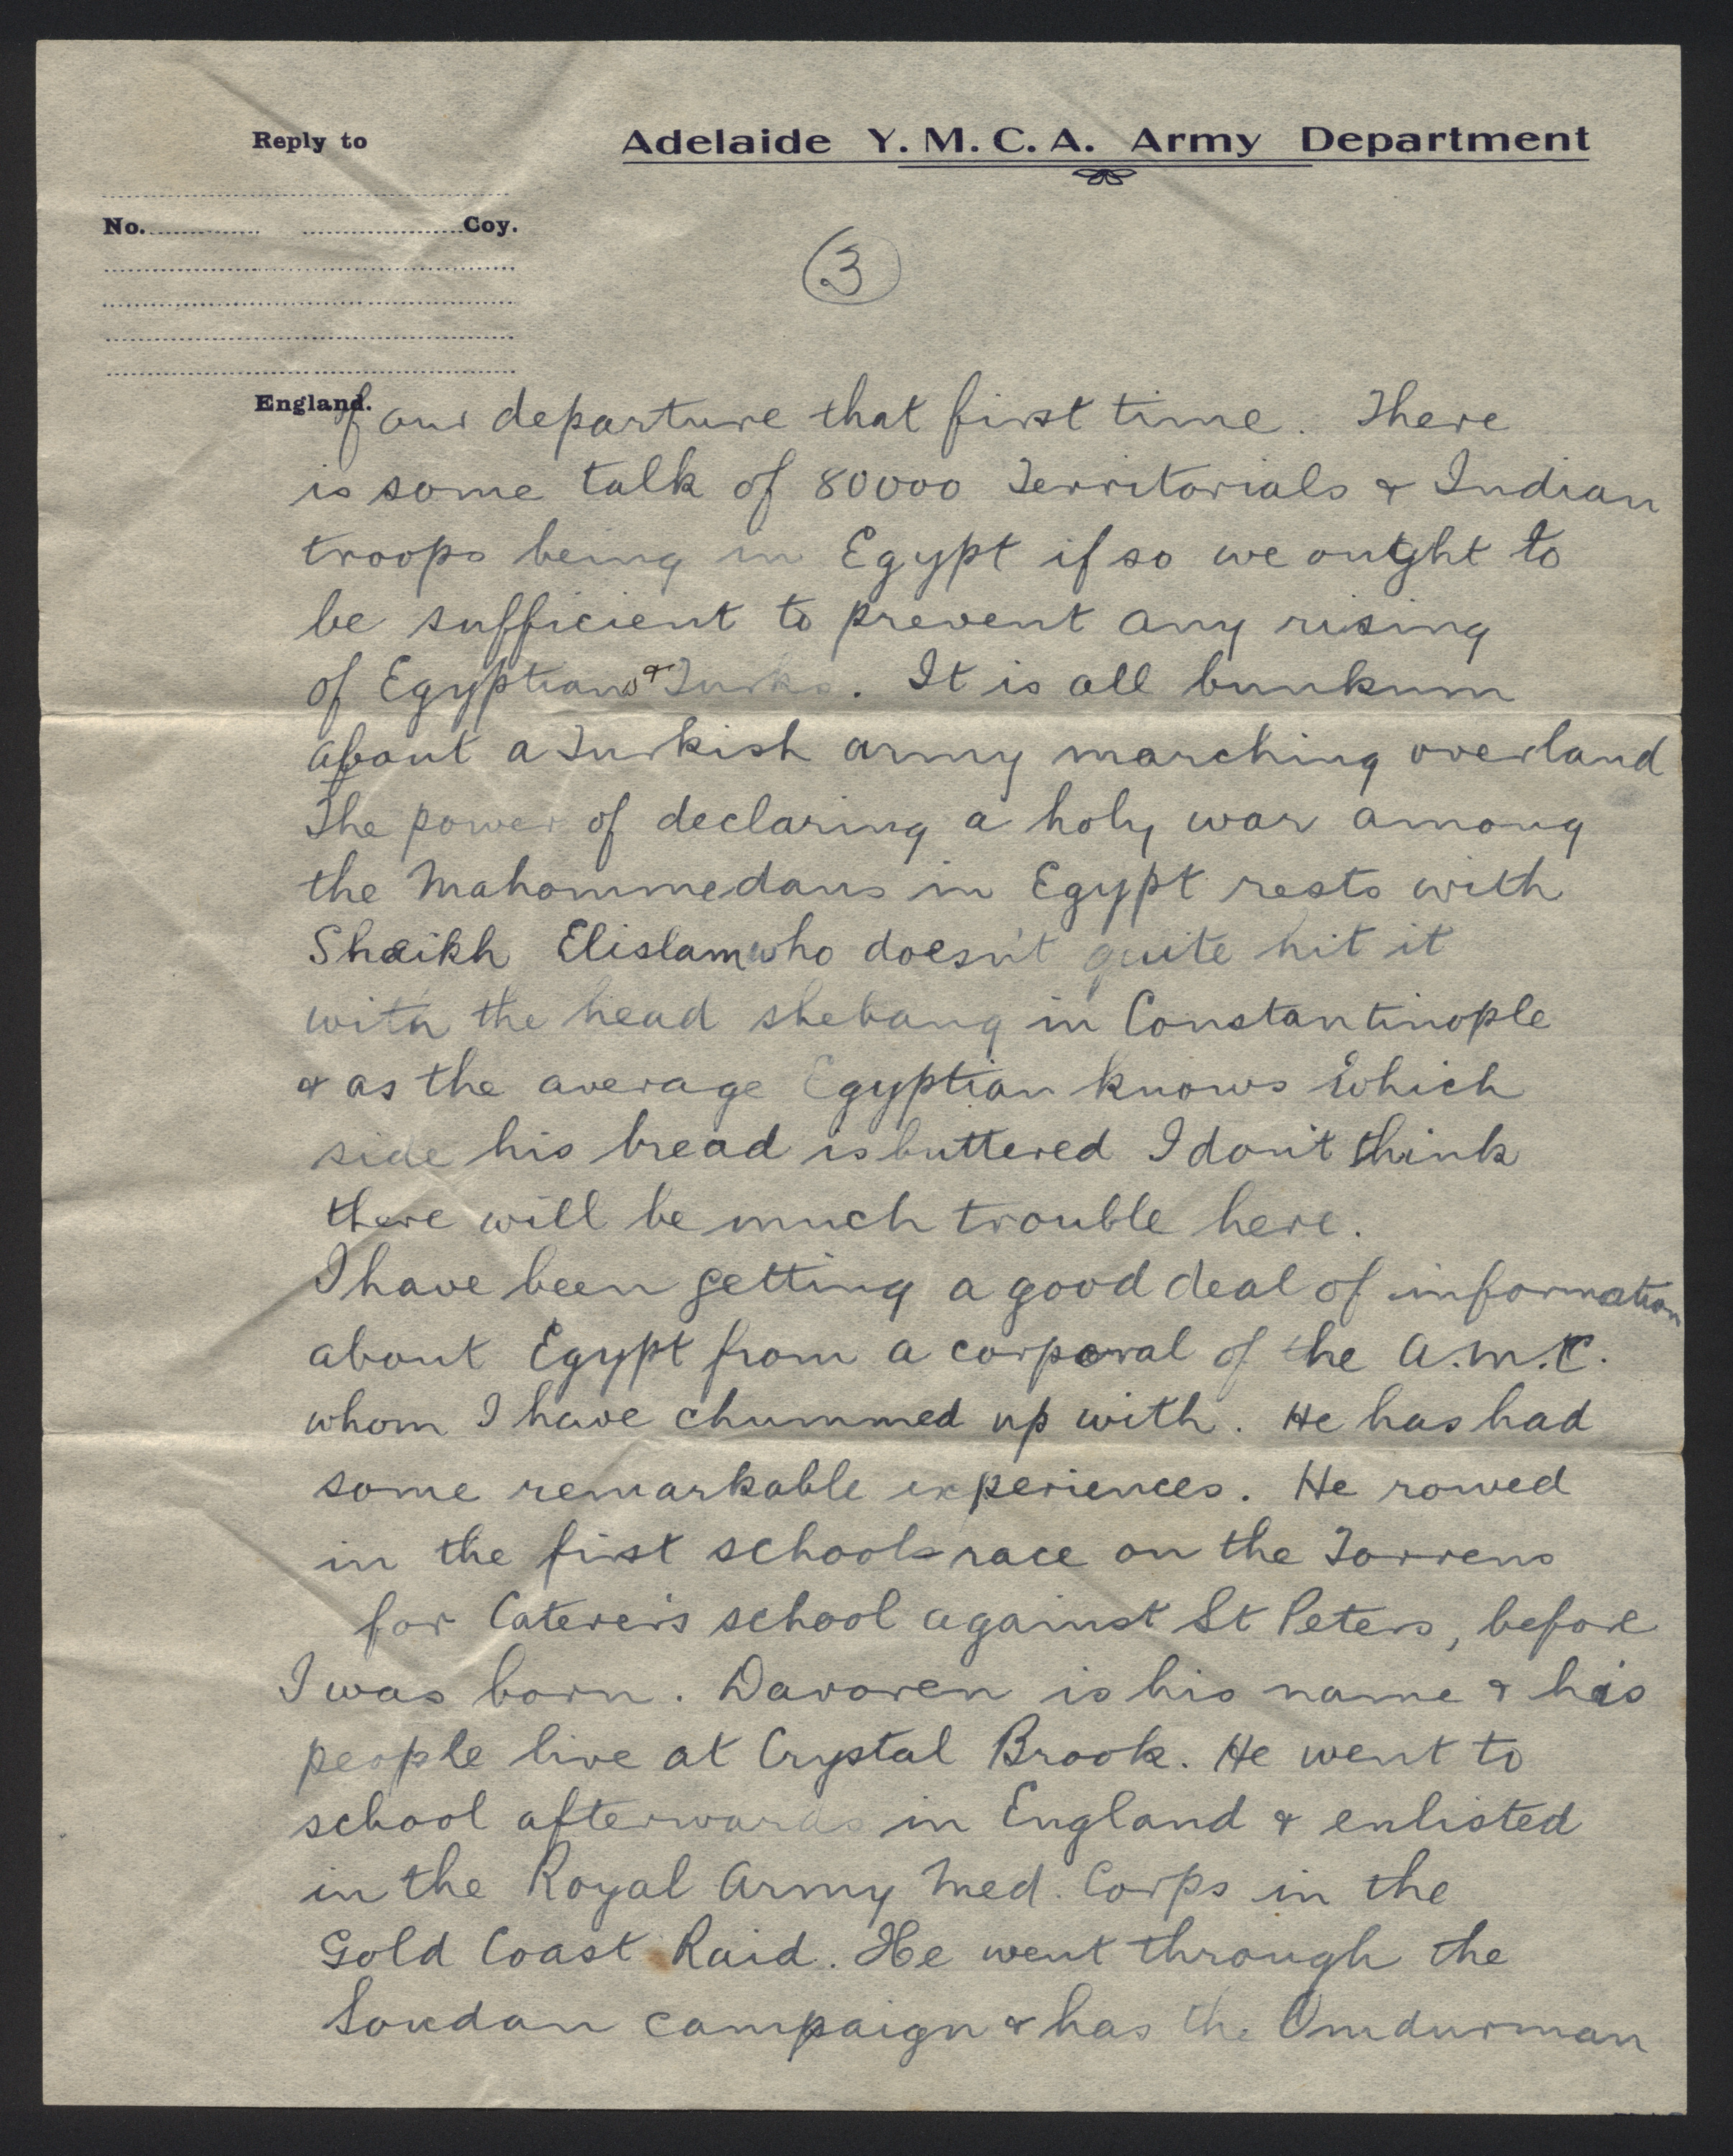 Reply to
Adelaide Y.M.C.A. Army Department
No. Coy.
3
England.
of our departure that first time. There
is some talk of 80000 Territorials & Indian
troops being in Egypt if so we ought to
be sufficient to prevent any rising
of Egyptians & Turks. It is all bunkum
about a Turkish army marching overland
The power of declaring a holy war among
the Mahommedans in Egypt rests with
Shaikh Elislam who doesn't quite hit it
with the head shebang in Constantinople
& as the average Egyptian knows which
side his bread is buttered I don't think
there will be much trouble here.
I have been getting a good deal of information
about Egypt from a corporal of the A.M.C.
whom I have chummed up with. He has had
some remarkable experiences. He rowed
in the first schools race on the Torrens
for Caterer's school against St Peters, before
I was born. Davoren is his name & his
people live at Crystal Brook. He went to
school afterwards in England & enlisted
in the Royal Army Med. Corps in the
Gold Coast Raid. He went through the
Soudan campaign & has the Omdurman